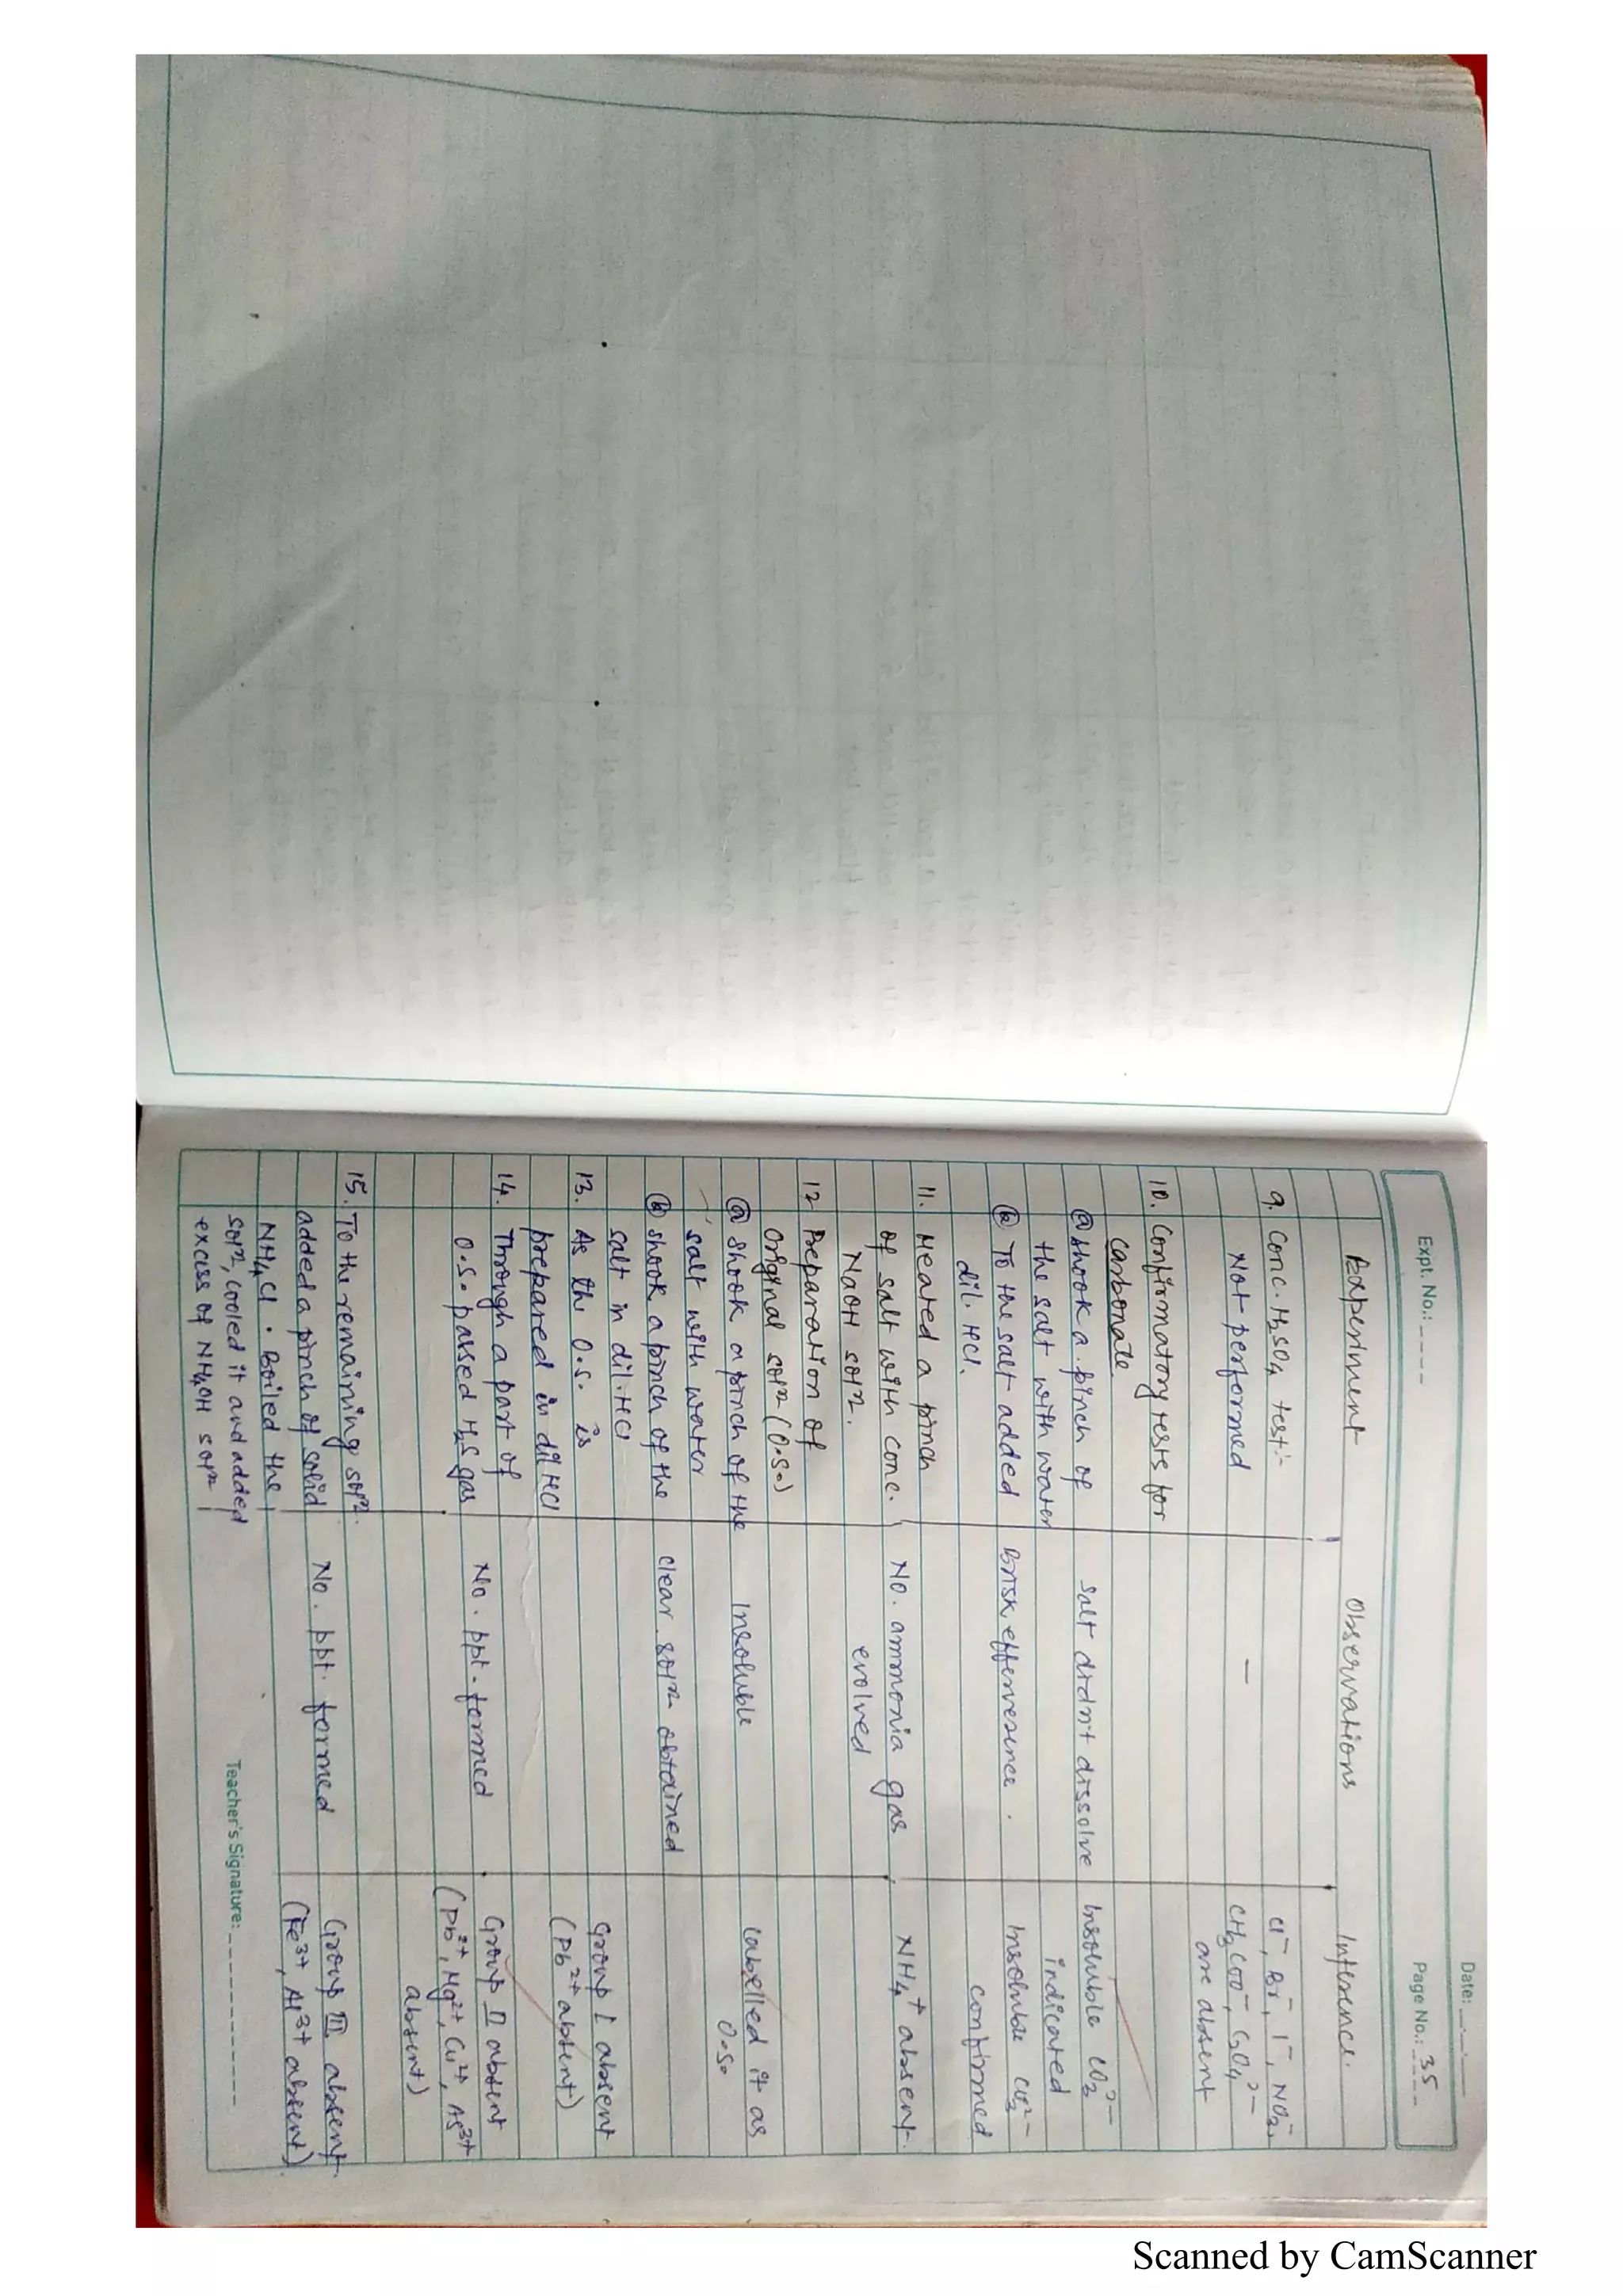 Date: __.__.__
Expt. No.: ____ Page No.: 35
Experiment Observations Inference.
9. Conc. H₂SO₄ test:- Cl⁻, Br⁻, I⁻, NO₃⁻,
Not performed — CH₃COO⁻, C₂O₄²⁻
are absent
10. Confirmatory tests for
carbonate
ⓐ shook a pinch of salt didn't dissolve Insoluble CO₃²⁻
the salt with water indicated
ⓑ To the salt added Brisk effervesence. Insoluble CO₃²⁻
dil. HCl. confirmed
11. Heated a pinch
of salt with conc. No. ammonia gas NH₄⁺ absent.
NaOH solⁿ. evolved
12 Preparation of
Original solⁿ (O.S.)
ⓐ shook a pinch of the Insoluble labelled it as
salt with water O.S.
ⓑ shook a pinch of the clear solⁿ obtained
salt in dil. HCl
13. As the O.S. is Group I absent
prepared in dil HCl (Pb²⁺ absent)
14. Through a part of No. ppt. formed Group II absent
O.S. passed H₂S gas (Pb²⁺, Hg²⁺, Cu²⁺, As³⁺
absent)
15. To the remaining solⁿ. No. ppt. formed Group III absent.
added a pinch of solid (Fe³⁺, Al³⁺ absent).
NH₄Cl. Boiled the
solⁿ, cooled it and added
excess of NH₄OH solⁿ
Teacher's Signature: __________
Scanned by CamScanner